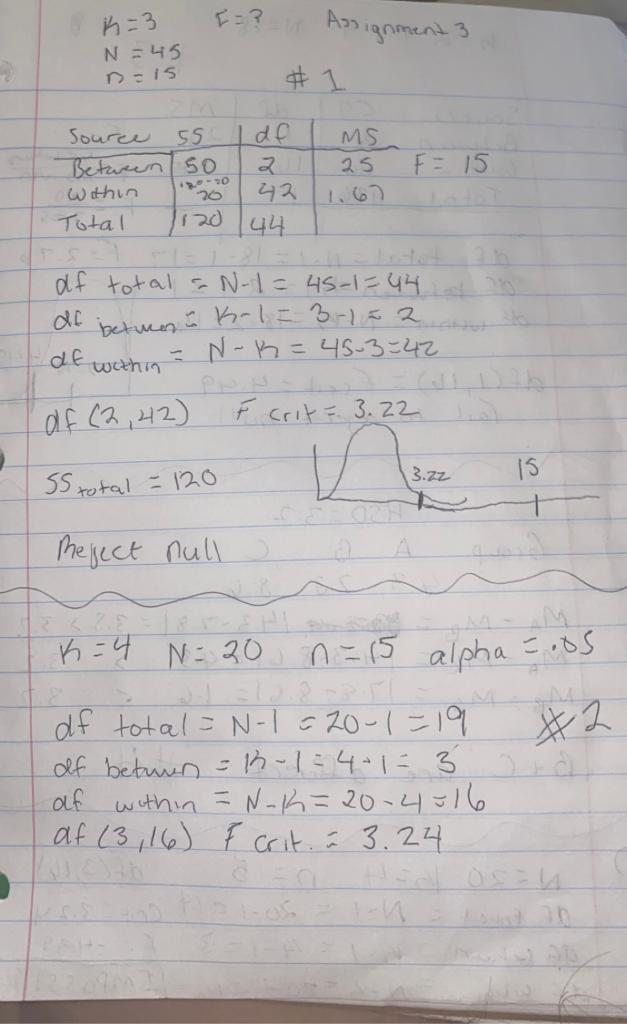 K=3 F=? Assignment 3
N=45
n=15 #1
Source SS df MS
Between 50 2 25 F= 15
Within 20 42 1.67
Total 120 44
df total = N-1 = 45-1=44
df between = K-1 = 3-1 = 2
df within = N-K = 45-3=42
df (2,42) F crit = 3.22
SS total = 120 3.22 15
Reject null
K=4 N=20 n=15 alpha = .05
df total = N-1 = 20-1 = 19 #2
df between = K-1 = 4-1 = 3
df within = N-K = 20-4=16
df (3,16) F crit. = 3.24